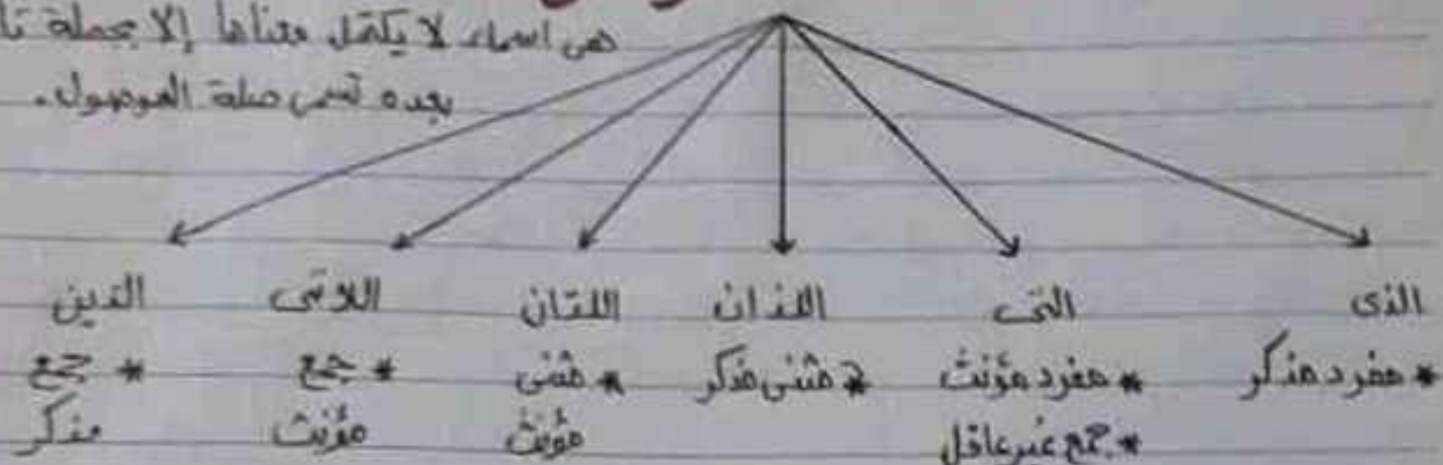 هى اسماء لا يكتمل معناها إلا بجملة
بعده تسمى صلة الموصول.
الذى
* مفرد مذكر
التى
* مفرد مؤنث
* جمع غير عاقل
اللذان
* مثنى مذكر
اللتان
* مثنى
مؤنث
اللاتى
* جمع
مؤنث
الذين
* جمع
مذكر